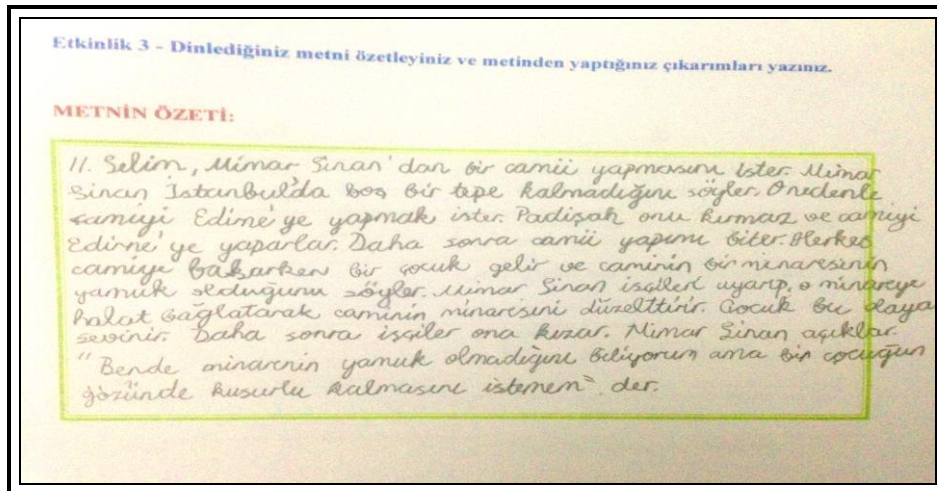 Etkinlik 3 - Dinlediğiniz metni özetleyiniz ve metinden yaptığınız çıkarımları yazınız.
METNİN ÖZETİ:
II. Selim, Mimar Sinan'dan bir camii yapmasını ister. Mimar
Sinan İstanbul'da boş bir tepe kalmadığını söyler. O nedenle
camiyi Edirne'ye yapmak ister. Padişah onu kırmaz ve camiyi
Edirne'ye yaparlar. Daha sonra camii yapımı biter. Herkes
camiye bakarken bir çocuk gelir ve caminin bir minaresinin
yamuk olduğunu söyler. Mimar Sinan işçileri uyarıp, o minareye
halat bağlatarak caminin minaresini düzelttirir. Çocuk bu olaya
sevinir. Daha sonra işçiler ona kızar. Mimar Sinan açıklar.
"Bende minarenin yamuk olmadığını biliyorum ama bir çocuğun
gözünde kusurlu kalmasını istemem" der.